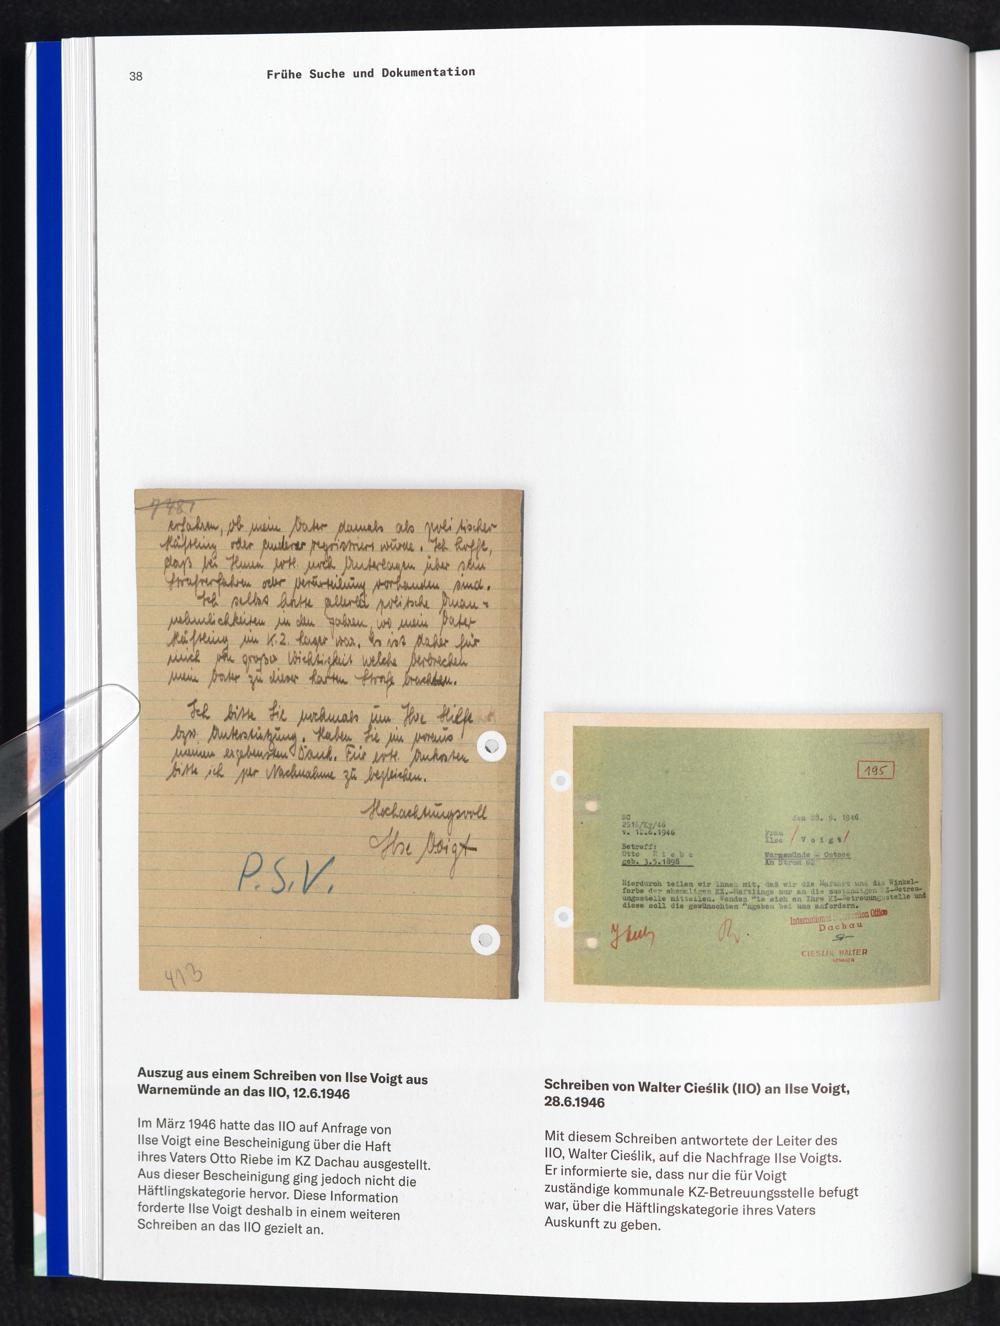 38
Frühe Suche und Dokumentation
7481
erfahren, ob mein Vater damals als politischer
Häftling oder anderer registriert wurde. Ich hoffe,
daß bei Ihnen evtl. noch Unterlagen über sein
Strafverfahren oder Verurteilung vorhanden sind.
Ich selbst hatte allerlei politische Unan-
nehmlichkeiten in den Jahren, wo mein Vater
Häftling im K.Z. Lager war. Es ist daher für
mich von großer Wichtigkeit welche Verbrechen
mein Vater zu dieser harten Strafe brachten.
Ich bitte Sie nochmals um Ihre Hilfe
bzw. Unterstützung. Haben Sie im voraus
meinen ergebensten Dank. Für evtl. Unkosten
bitte ich per Nachnahme zu begleichen.
Hochachtungsvoll
Ilse Voigt
P.S.V.
413
195
den 28. 6. 1946
2516/Ky/46
v. 12.6.1946
Frau
Ilse Voigt
Betreff:
Otto Riebe
geb. 3.5.1898
Warnemünde Ostsee
Am Strom
Hierdurch teilen wir Ihnen mit, daß wir die Haftart und die Winkel-
farbe der ehemaligen KZ.-Häftlinge nur an die zuständigen KZ-Betreu-
ungsstelle mitteilen. Wenden Sie sich an Ihre KZ-Betreuungsstelle und
diese soll die gewünschten Angaben bei uns anfordern.
International Office
Dachau
CIEŚLIK WALTER
Auszug aus einem Schreiben von Ilse Voigt aus
Warnemünde an das IIO, 12.6.1946
Im März 1946 hatte das IIO auf Anfrage von
Ilse Voigt eine Bescheinigung über die Haft
ihres Vaters Otto Riebe im KZ Dachau ausgestellt.
Aus dieser Bescheinigung ging jedoch nicht die
Häftlingskategorie hervor. Diese Information
forderte Ilse Voigt deshalb in einem weiteren
Schreiben an das IIO gezielt an.
Schreiben von Walter Cieślik (IIO) an Ilse Voigt,
28.6.1946
Mit diesem Schreiben antwortete der Leiter des
IIO, Walter Cieślik, auf die Nachfrage Ilse Voigts.
Er informierte sie, dass nur die für Voigt
zuständige kommunale KZ-Betreuungsstelle befugt
war, über die Häftlingskategorie ihres Vaters
Auskunft zu geben.